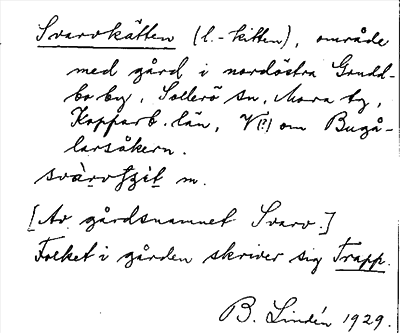 Svarvkätten (l. -kitten), område
med gård i nordöstra Grudd-
bo by, Sollerö sn, Mora tg,
Kopparb. län, V(?) om Bugå-
larsåkern.
m.
[Av gårdsnamnet Svarv.]
Folket i gården skriver sig Trapp.
B. Lindén 1929.